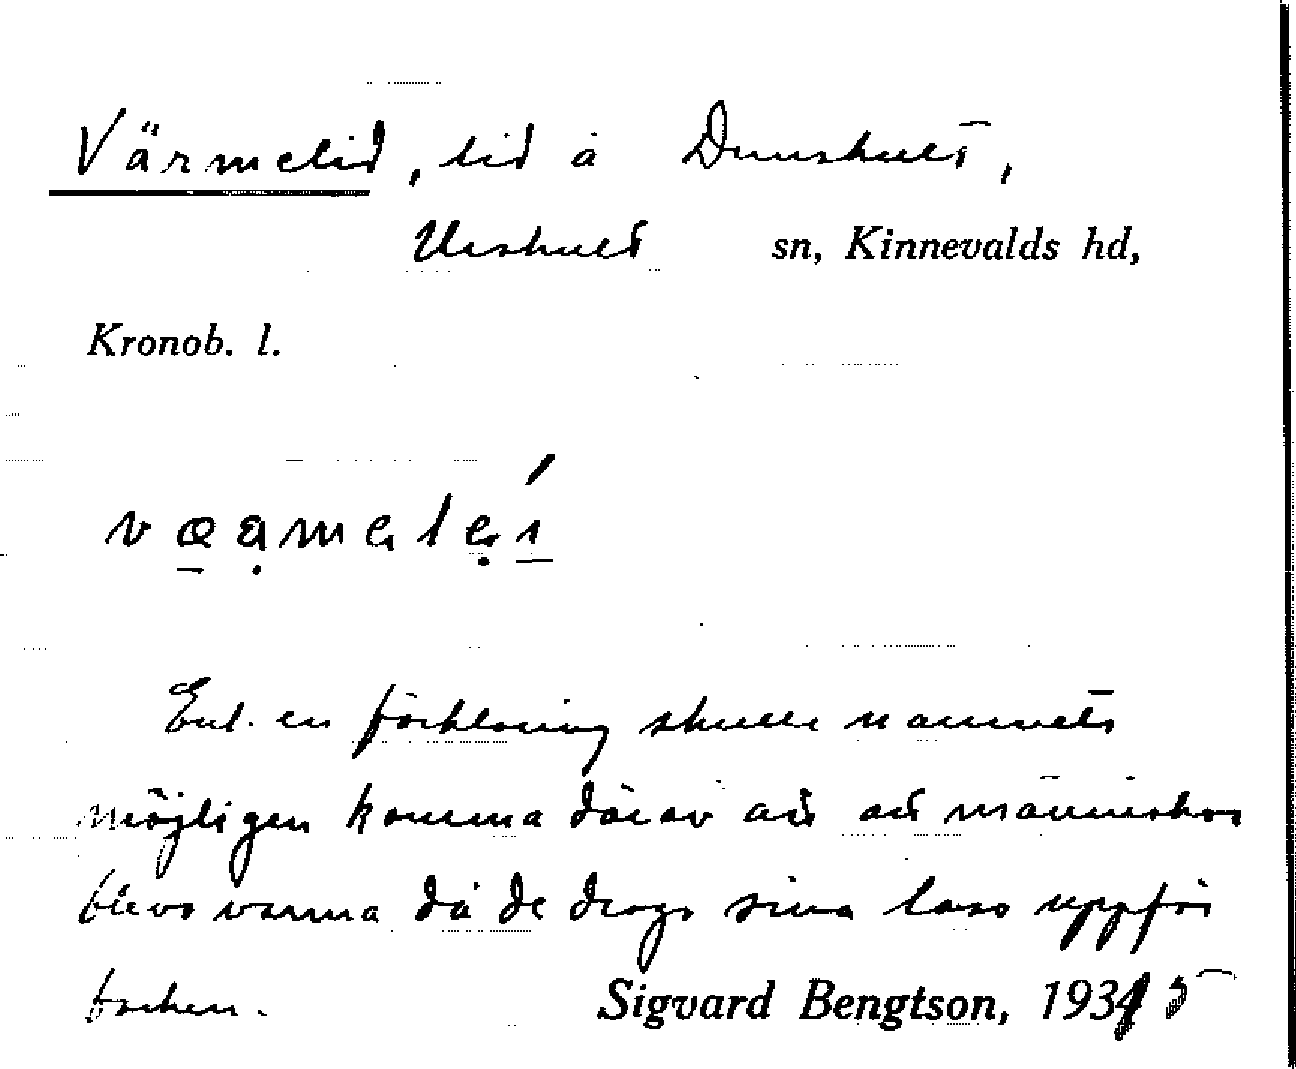 Värmelid, lid å Dunshult,
Urshult sn, Kinnevalds hd,
Kronob. l.
Enl. en förklaring skulle namnet
möjligen komma därav att människor
blevo varma då de drogo sina lass uppför
backen. Sigvard Bengtson, 1935